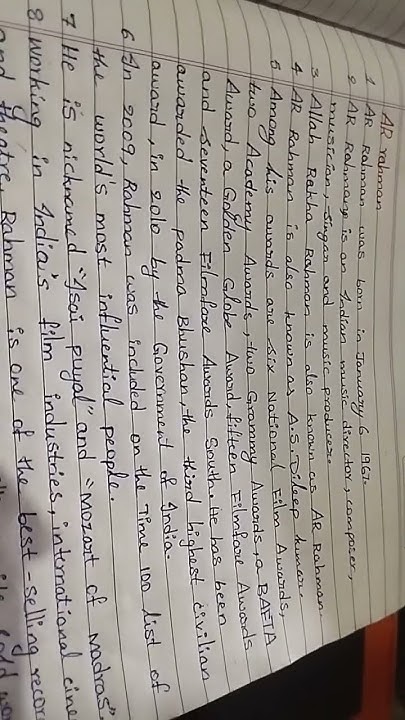 AR rahman
1 AR Rahman was born in January 6 1967.
2 AR Rahman is an Indian music director, composer,
musician, singar and music producer.
3 Allah Rakha Rahman is also known as AR Rahman.
4 AR Rahman is also known as A.S. Dileep kumar.
5 Among his awards are six National Film Awards,
two Academy Awards, two Grammy Awards, a BAFTA
Award, a Golden Globe Award, fifteen Filmfare Awards
and Seventeen Filmfare Awards South. He has been
awarded the padma Bhushan, the third highest civilian
award, in 2010 by the Government of India
6 In 2009, Rahman was included on the Time 100 list of
the world's most influential people.
7 He is nicknamed "Isai puyal" and "Mozart of Madras".
8 Working in India's film industries, international cine
and theatre, Rahman is one of the best-selling recor
sold